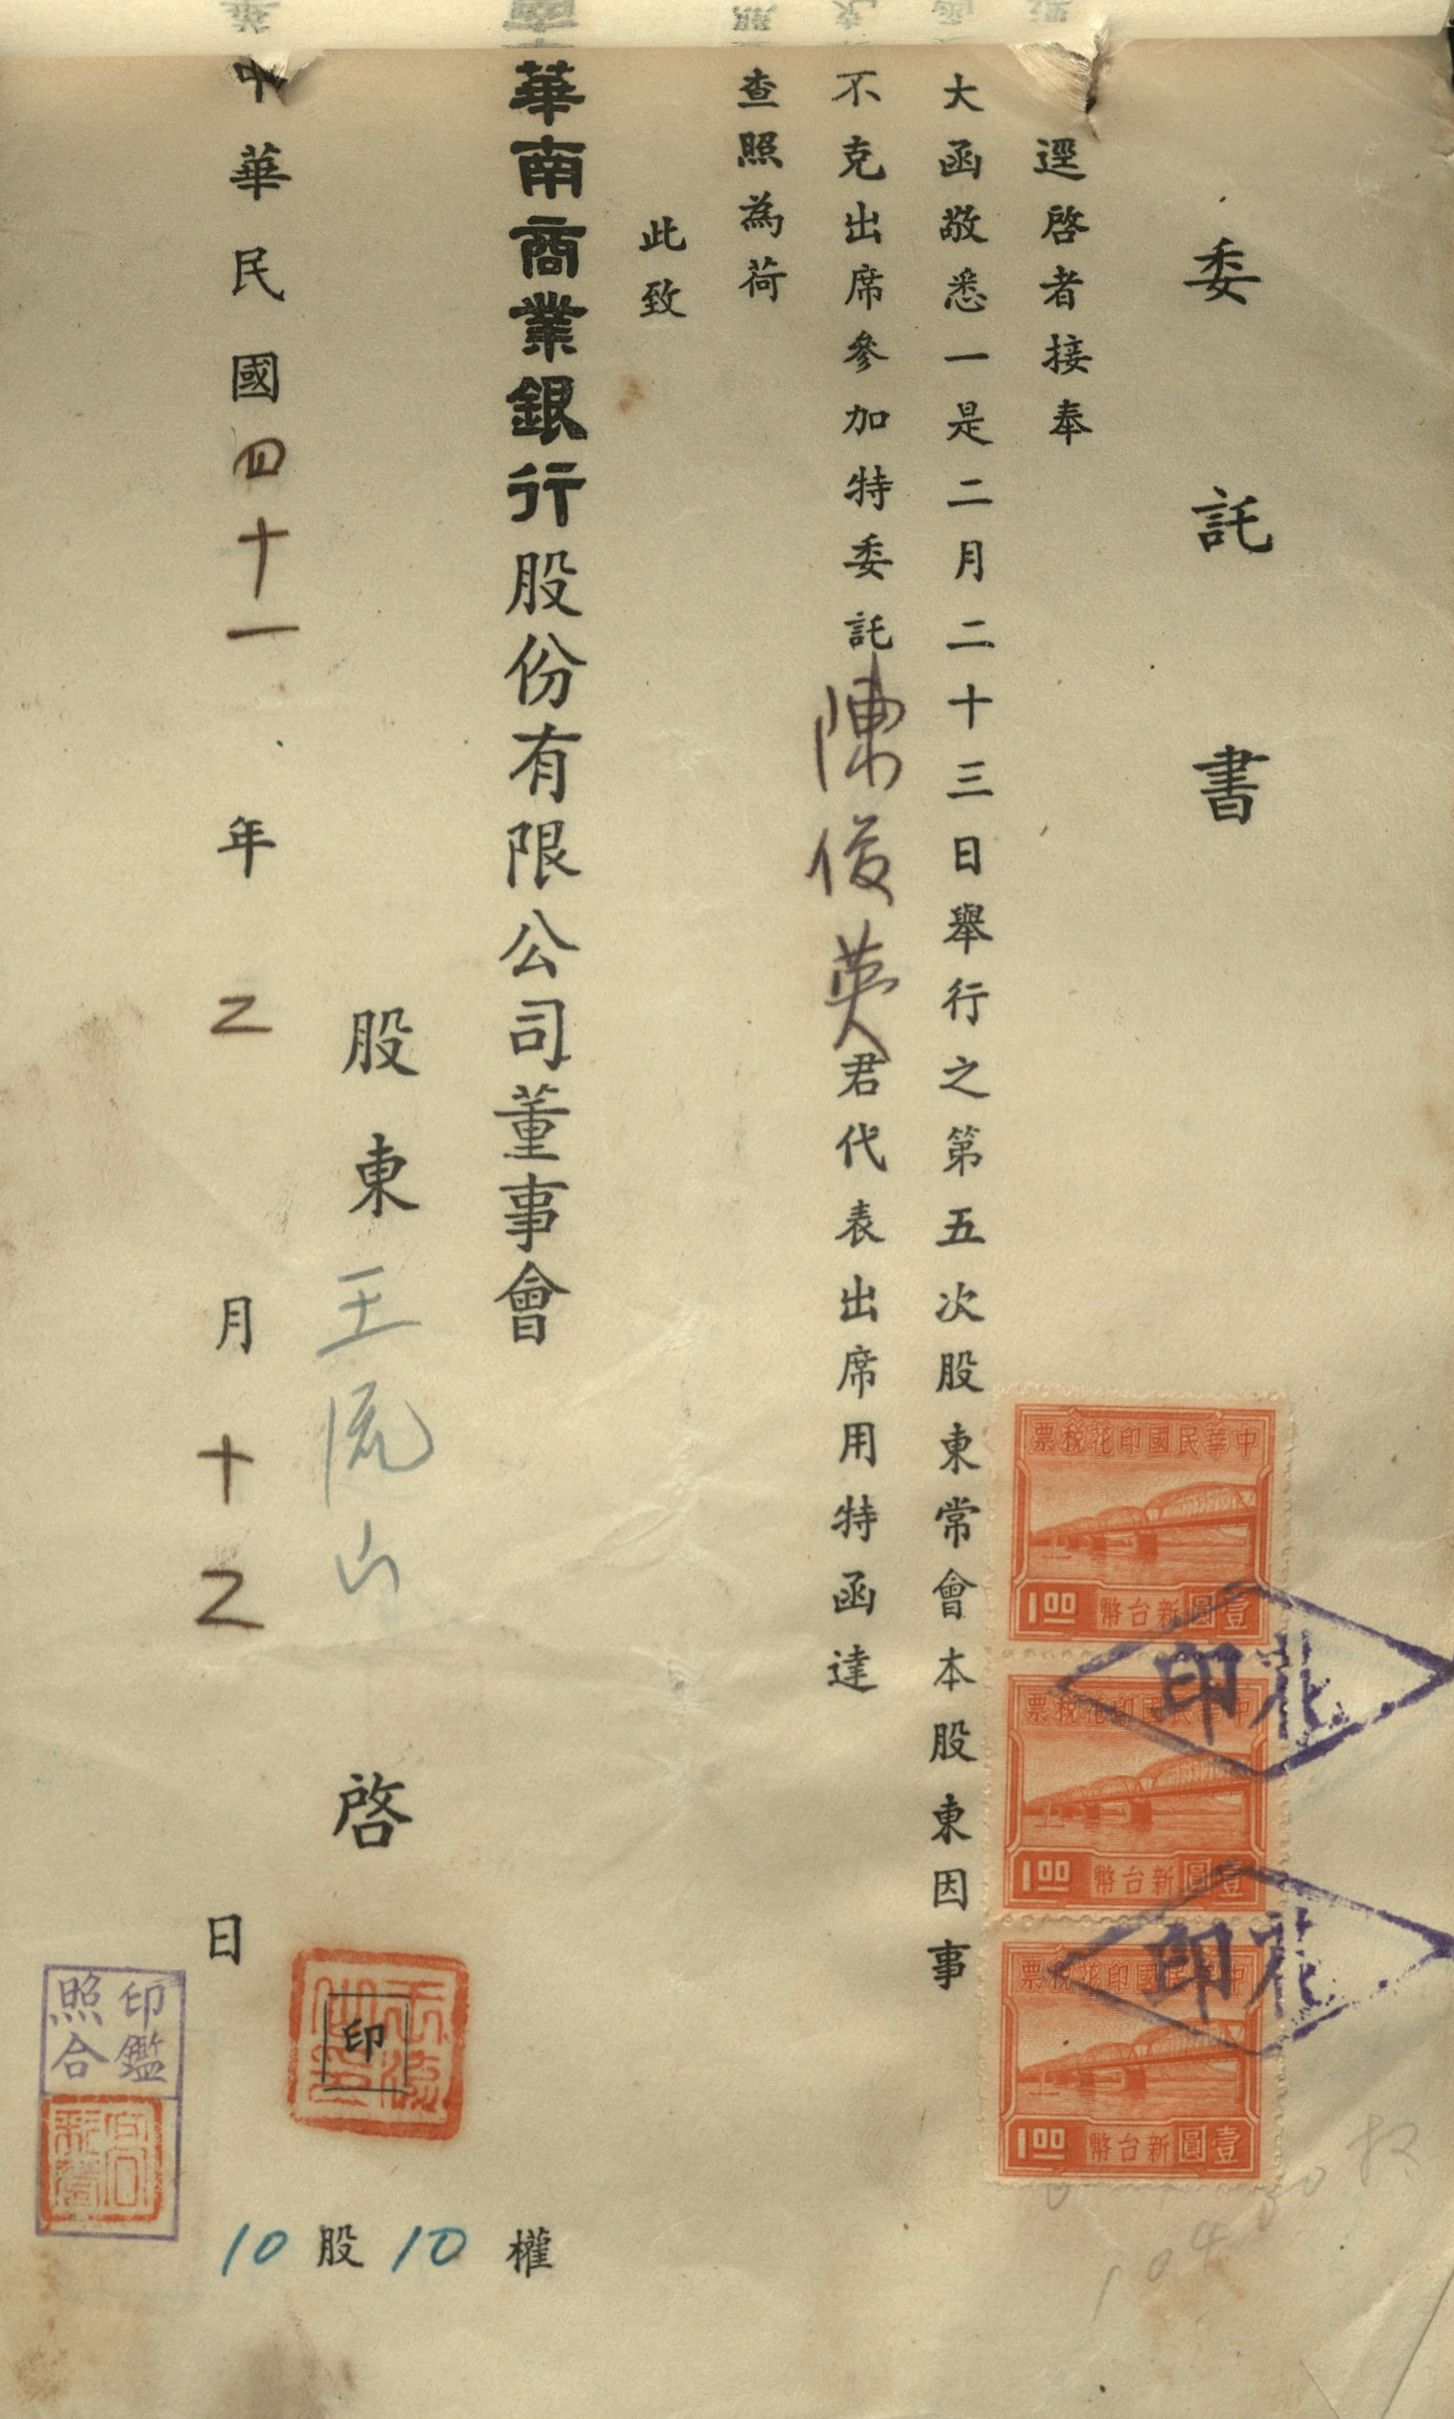 委託書
逕啓者接奉
大函敬悉一是二月二十三日舉行之第五次股東常會本股東因事
不克出席參加特委託陳俊英君代表出席用特函達
查照為荷
此致
華南商業銀行股份有限公司董事會
股東王流山啓
印
中華民國四十一年乙月十乙日
10股10權
印鑑
照合
中華民國印花稅票
1.00
壹圓新台幣
中華民國印花稅票
1.00
壹圓新台幣
中華民國印花稅票
1.00
壹圓新台幣
花印
花印